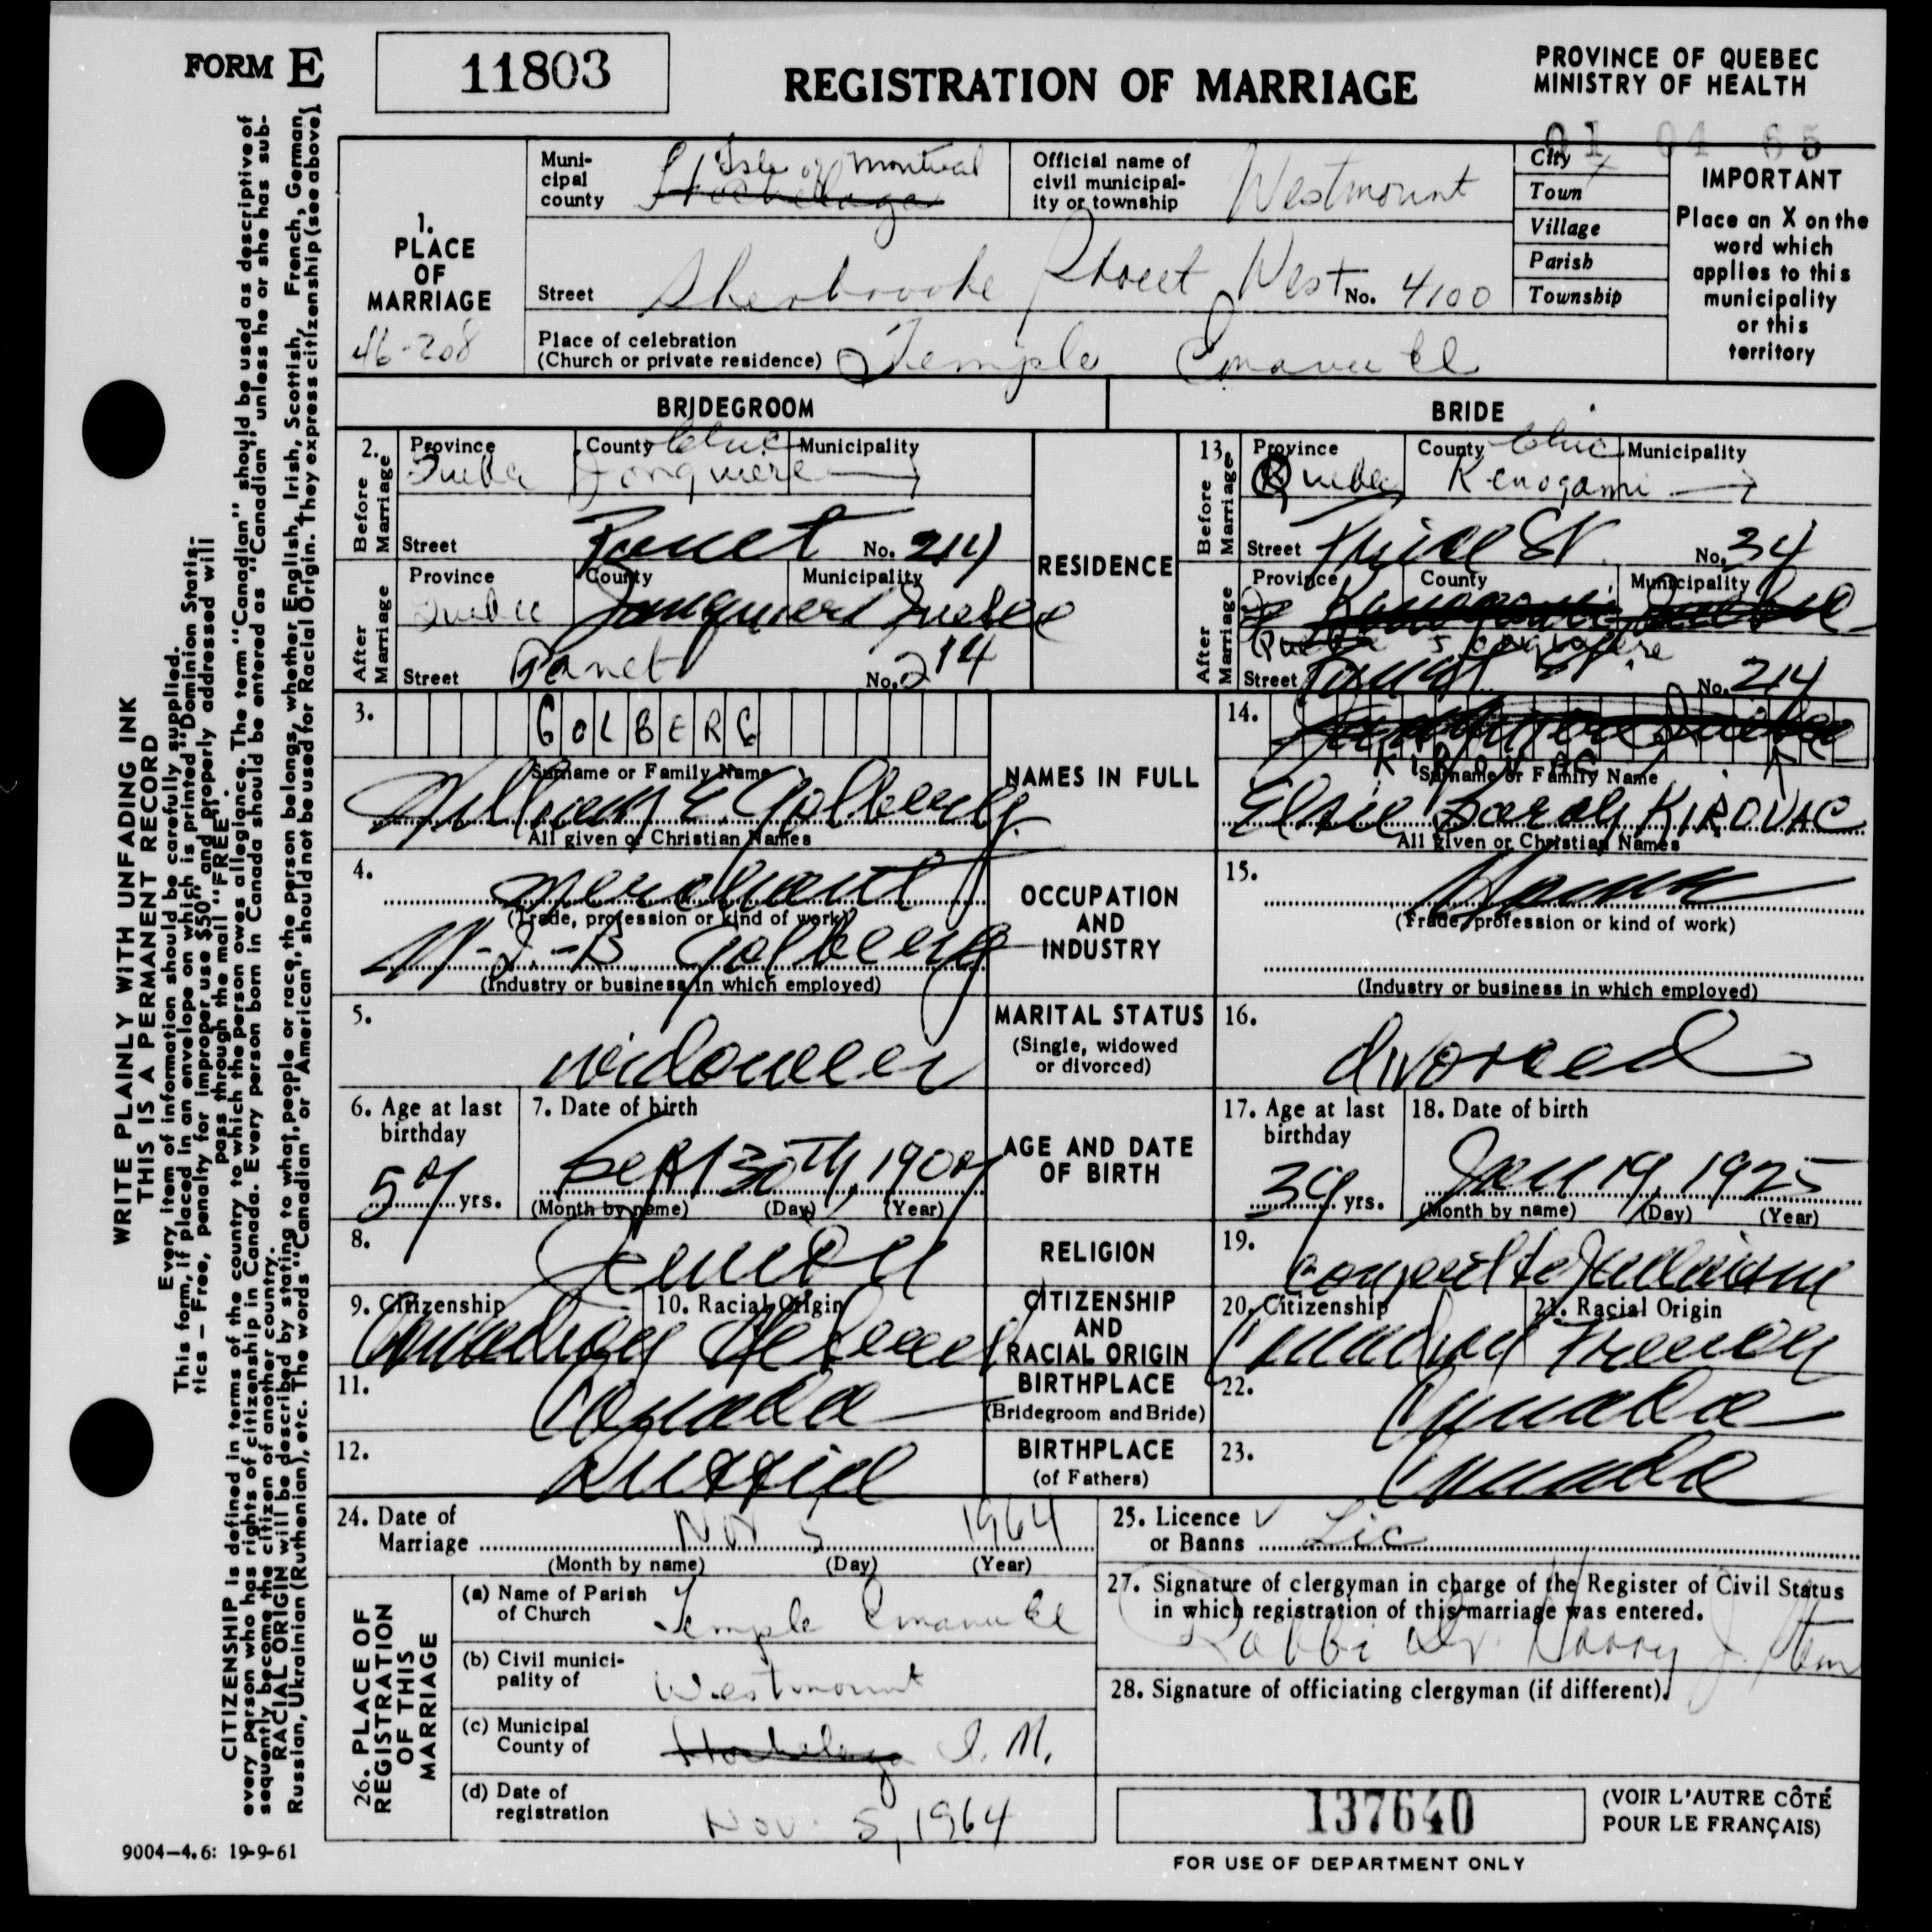 FORM E
11803
REGISTRATION OF MARRIAGE
PROVINCE OF QUEBEC
MINISTRY OF HEALTH
01 04 65
WRITE PLAINLY WITH UNFADING INK
THIS IS A PERMANENT RECORD
Every item of information should be carefully supplied.
This form, if placed in an envelope on which is printed "Dominion Statis-
tics — Free, penalty for improper use $50" and properly addressed will
pass through the mail "FREE".
CITIZENSHIP is defined in terms of the country to which the person owes allegiance. The term "Canadian" should be used as descriptive of
every person who has rights of citizenship in Canada. Every person born in Canada should be entered as "Canadian" unless he or she has sub-
sequently become the citizen of another country.
RACIAL ORIGIN will be described by stating to what people or race the person belongs, whether English, Irish, Scottish, French, German,
Russian, Ukrainian (Ruthenian), etc. The words "Canadian" or "American" should not be used for Racial Origin. They express citizenship (see above)
1.
PLACE
OF
MARRIAGE
46-208
Muni-
cipal
county
Isle of Montreal
Hochelaga
Official name of
civil municipal-
ity or township
Westmount
City X
Town
Village
Parish
Township
IMPORTANT
Place an X on the
word which
applies to this
municipality
or this
territory
Street Sherbrooke Street West No. 4100
Place of celebration
(Church or private residence) Temple Emanuel
BRIDEGROOM
BRIDE
2. Before Marriage
Province County Chic Municipality
Quebec Jonquiere
Street No. 214
After Marriage
Province County Municipality
Quebec Jonquiere Quebec
Street No. 214
RESIDENCE
13. Before Marriage
Province County Chic Municipality
Quebec Kenogami
Street Price St. No. 34
After Marriage
Province County Municipality
Quebec Jonquiere
Street No. 214
3. GOLBERG
Surname or Family Name
William E Golberg
All given or Christian Names
NAMES IN FULL
14. KIROUAC
Surname or Family Name
Elsie Sarah KIROUAC
All given or Christian Names
4. merchant
(Trade, profession or kind of work)
Golberg
(Industry or business in which employed)
OCCUPATION
AND
INDUSTRY
15.
(Trade, profession or kind of work)
(Industry or business in which employed)
5. widower
MARITAL STATUS
(Single, widowed
or divorced)
16. divorced
6. Age at last
birthday
yrs.
7. Date of birth
Sept 30th,
(Month by name) (Day) (Year)
AGE AND DATE
OF BIRTH
17. Age at last
birthday
39 yrs.
18. Date of birth
Jan 19, 1925
(Month by name) (Day) (Year)
8. Jewish
RELIGION
19. Convert to Judaism
9. Citizenship
Canadian
10. Racial Origin
Hebrew
CITIZENSHIP
AND
RACIAL ORIGIN
20. Citizenship
Canadian
21. Racial Origin
French
11. Canada
BIRTHPLACE
(Bridegroom and Bride)
22. Canada
12. Russia
BIRTHPLACE
(of Fathers)
23. Canada
24. Date of
Marriage Nov 5 1964
(Month by name) (Day) (Year)
25. Licence
or Banns Lic
26. PLACE OF
REGISTRATION
OF THIS
MARRIAGE
(a) Name of Parish
of Church
Temple Emanuel
(b) Civil munici-
pality of
Westmount
(c) Municipal
County of
Hochelaga I. M.
(d) Date of
registration
Nov. 5, 1964
27. Signature of clergyman in charge of the Register of Civil Status
in which registration of this marriage was entered.
Rabbi Dr. Harry J. Stern
28. Signature of officiating clergyman (if different).
137640
FOR USE OF DEPARTMENT ONLY
(VOIR L'AUTRE CÔTÉ
POUR LE FRANÇAIS)
9004—4.6: 19-9-61